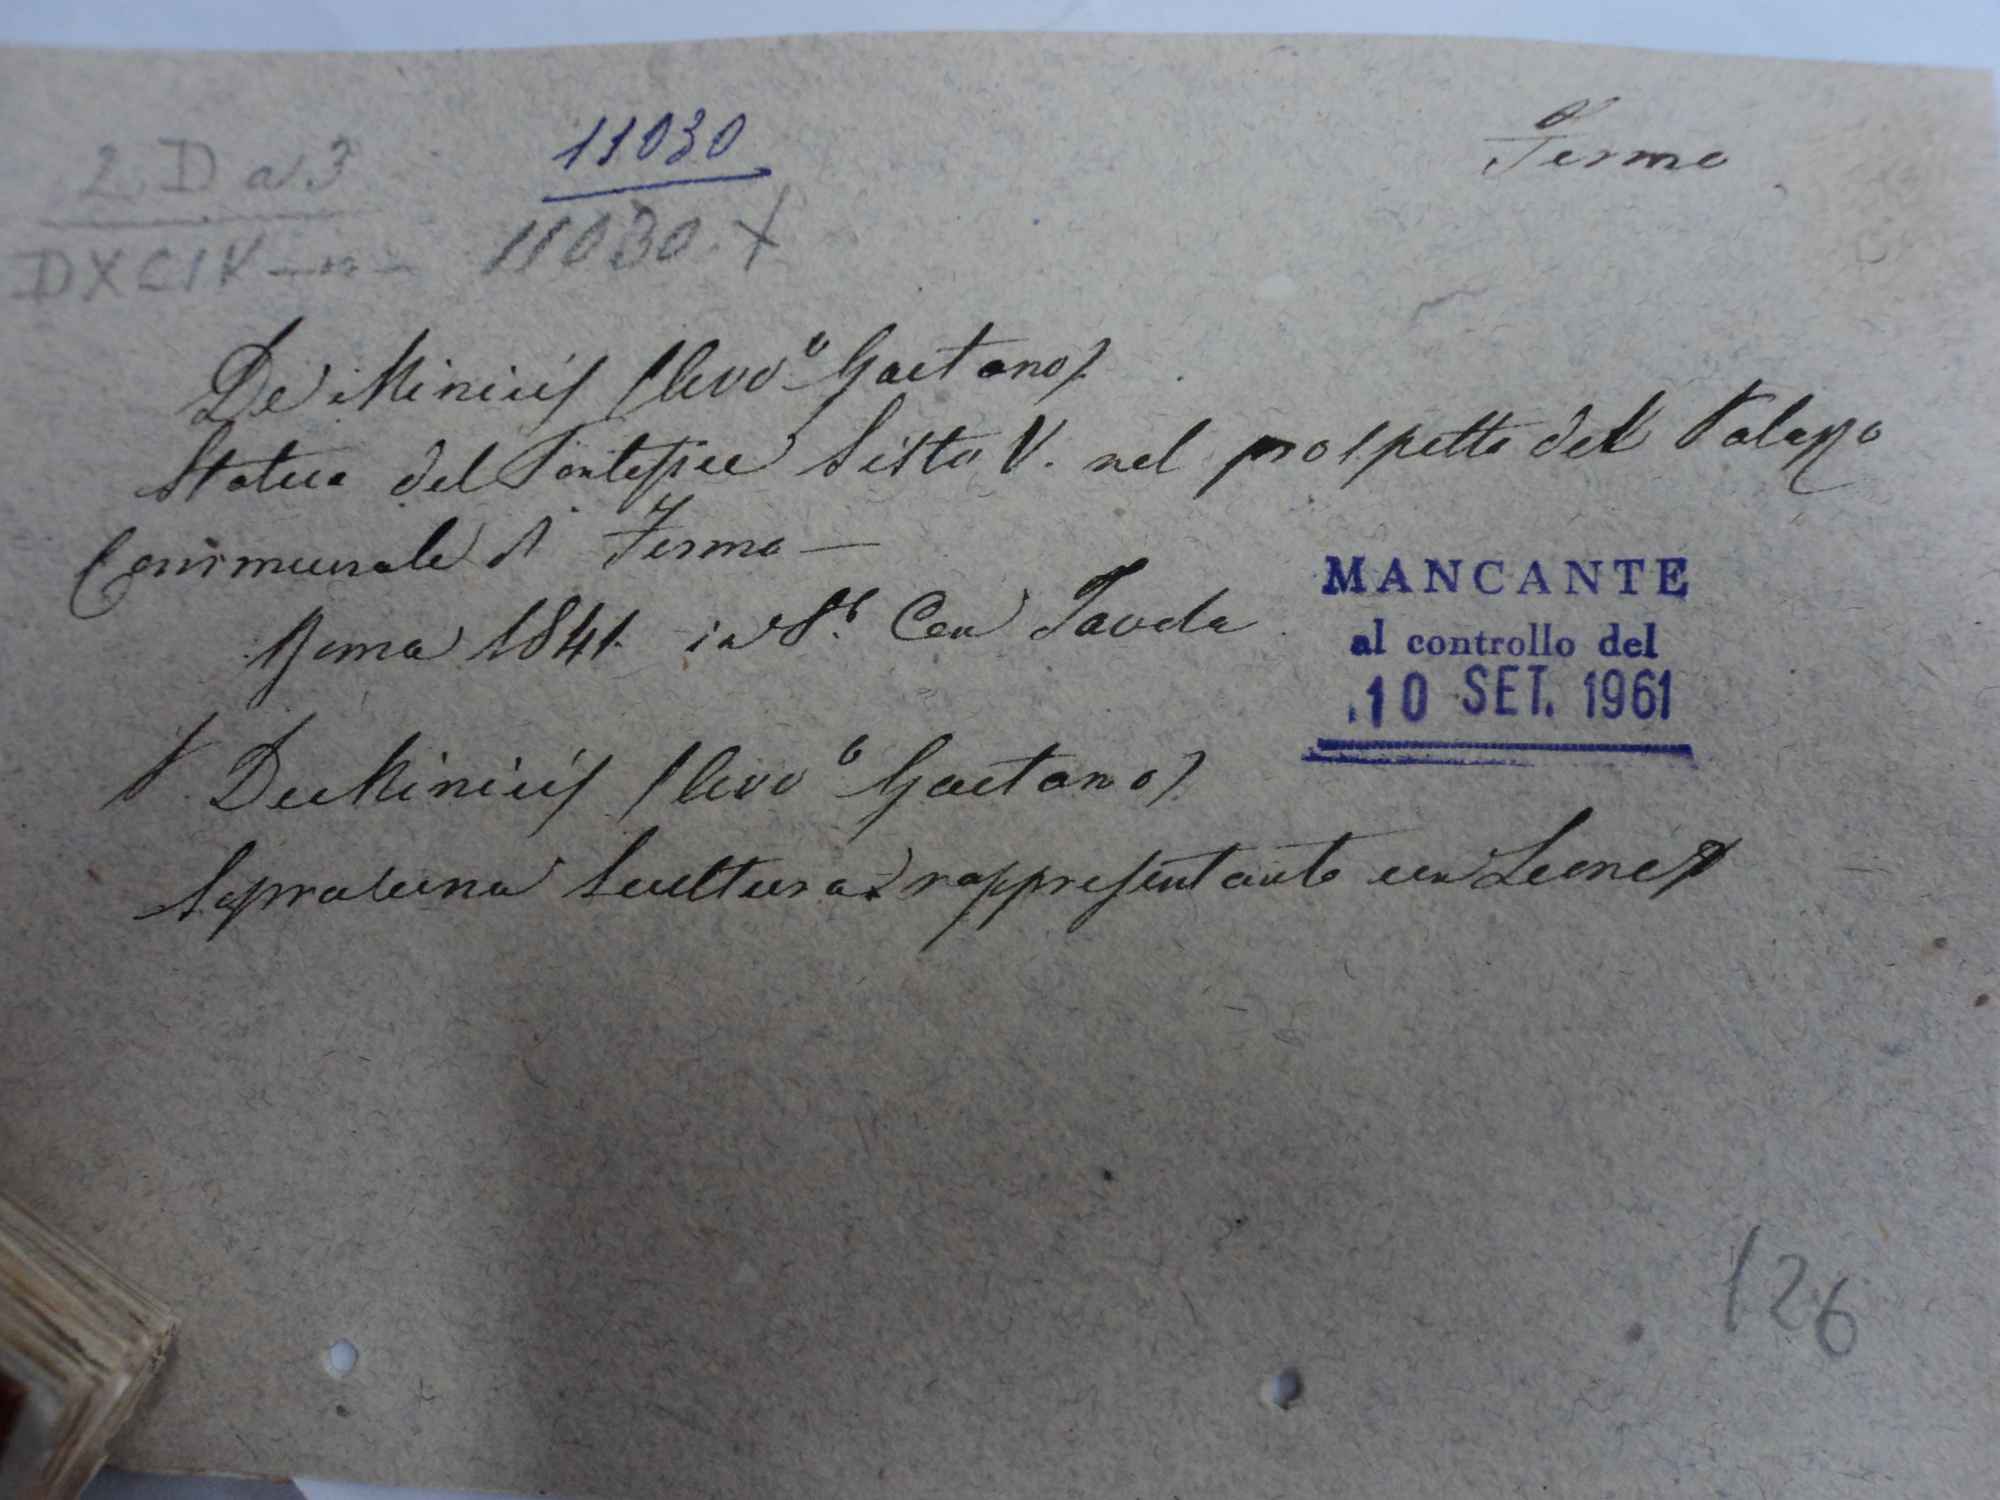 2 D a 3
11030
Fermo
DXCIX
11030 +
De Minicis (Avv.o Gaetano)
Statua del Pontefice Sisto V. nel prospetto del Palazzo
Communale di Fermo —
Roma 1841. in 8.° Con Tavola
MANCANTE
al controllo del
10 SET. 1961
De Minicis (Avv.o Gaetano)
Sopra una Scultura rappresentante un Leone
126